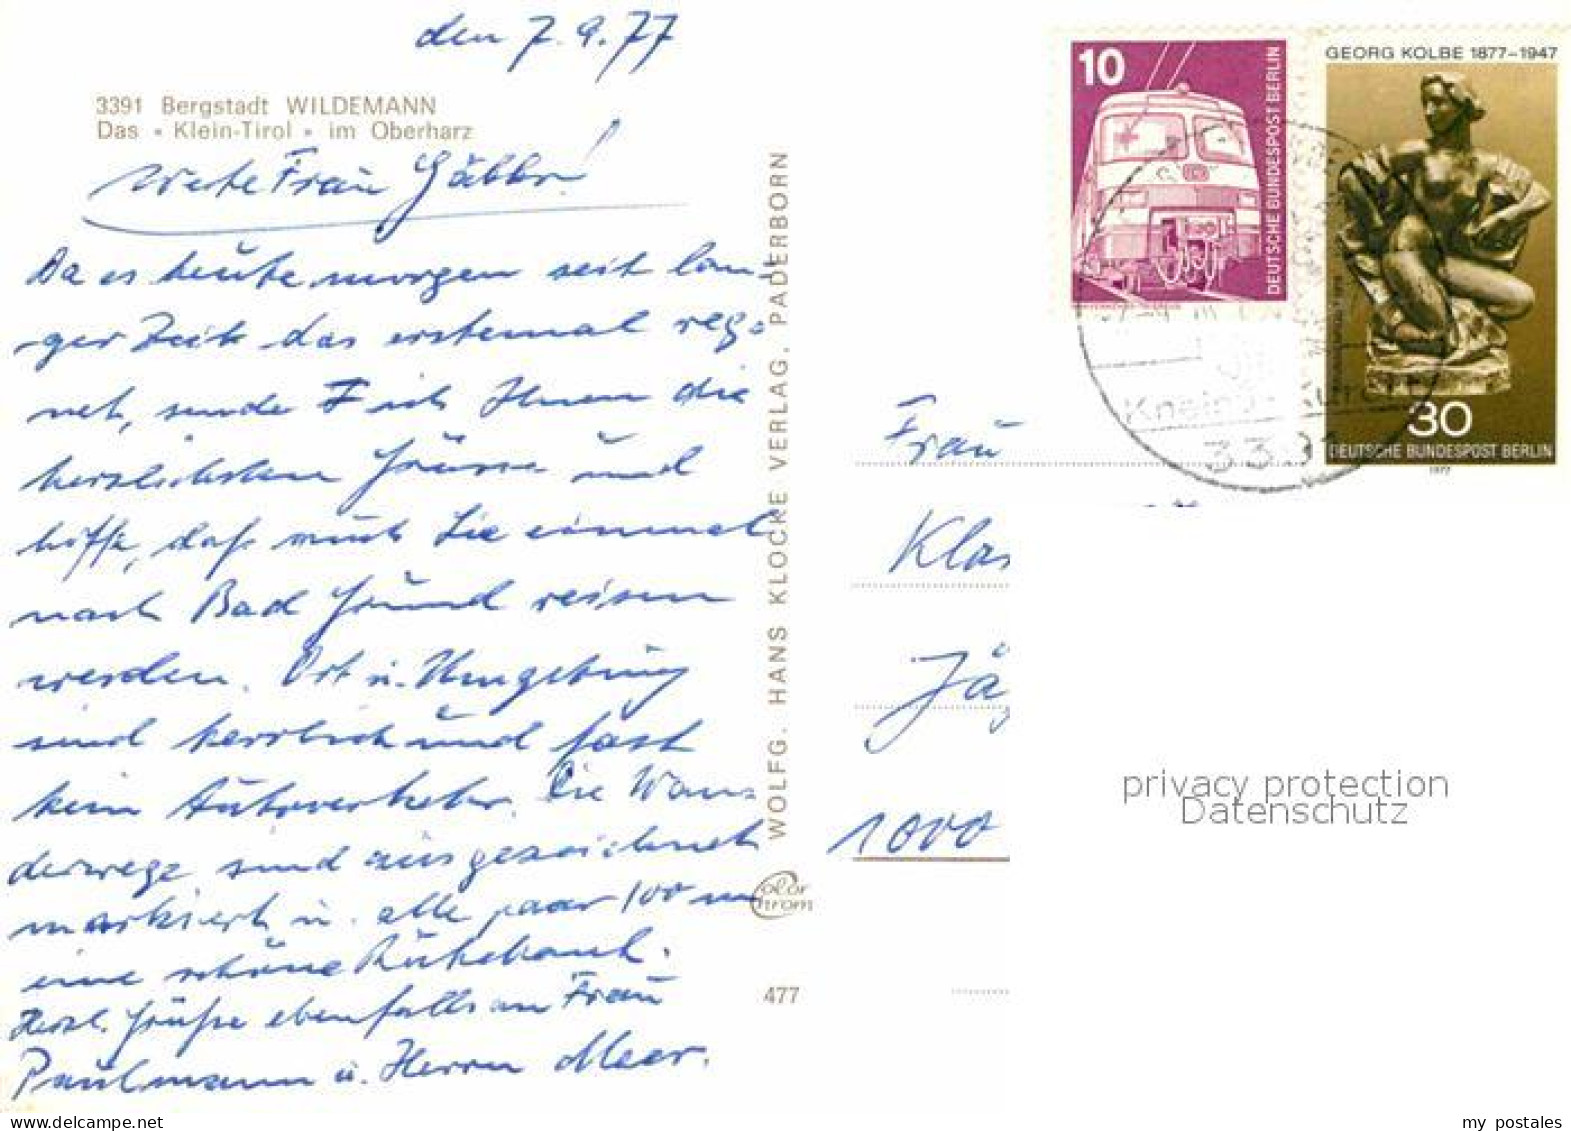 den 7.9.77
3391 Bergstadt WILDEMANN
Das « Klein-Tirol » im Oberharz
Werte Frau
Da es heute morgen seit lan-
ger Zeit das erstemal reg-
net, sende ich Ihnen die
herzlichsten Grüsse und
hoffe, daß auch Sie einmal
nach Bad Grund reisen
werden. Ort u. Umgebung
sind herrlich und fast
kein Autoverkehr. Die Wan-
derwege sind ausgezeichnet
markiert u. alle paar 100 m
eine schöne Ruhebank.
Herzl. Grüße ebenfalls an Frau
Paulmann u. Herrn Meer.
WOLFG. HANS KLOCKE VERLAG, PADERBORN
color
chrom
477
10
DEUTSCHE BUNDESPOST BERLIN
GEORG KOLBE 1877-1947
30
DEUTSCHE BUNDESPOST BERLIN
1977
Frau
Klas
Jäg
1000
privacy protection
Datenschutz
my postales